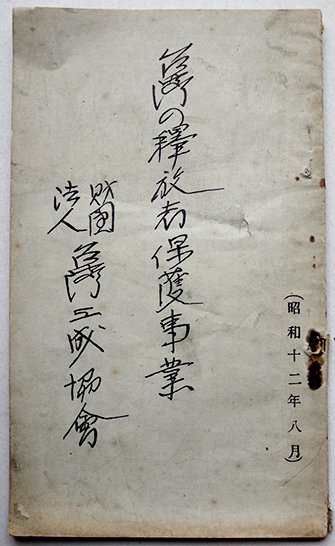 (昭和十二年八月)
台湾の釋放者保護事業
財團法人 台湾三成協會